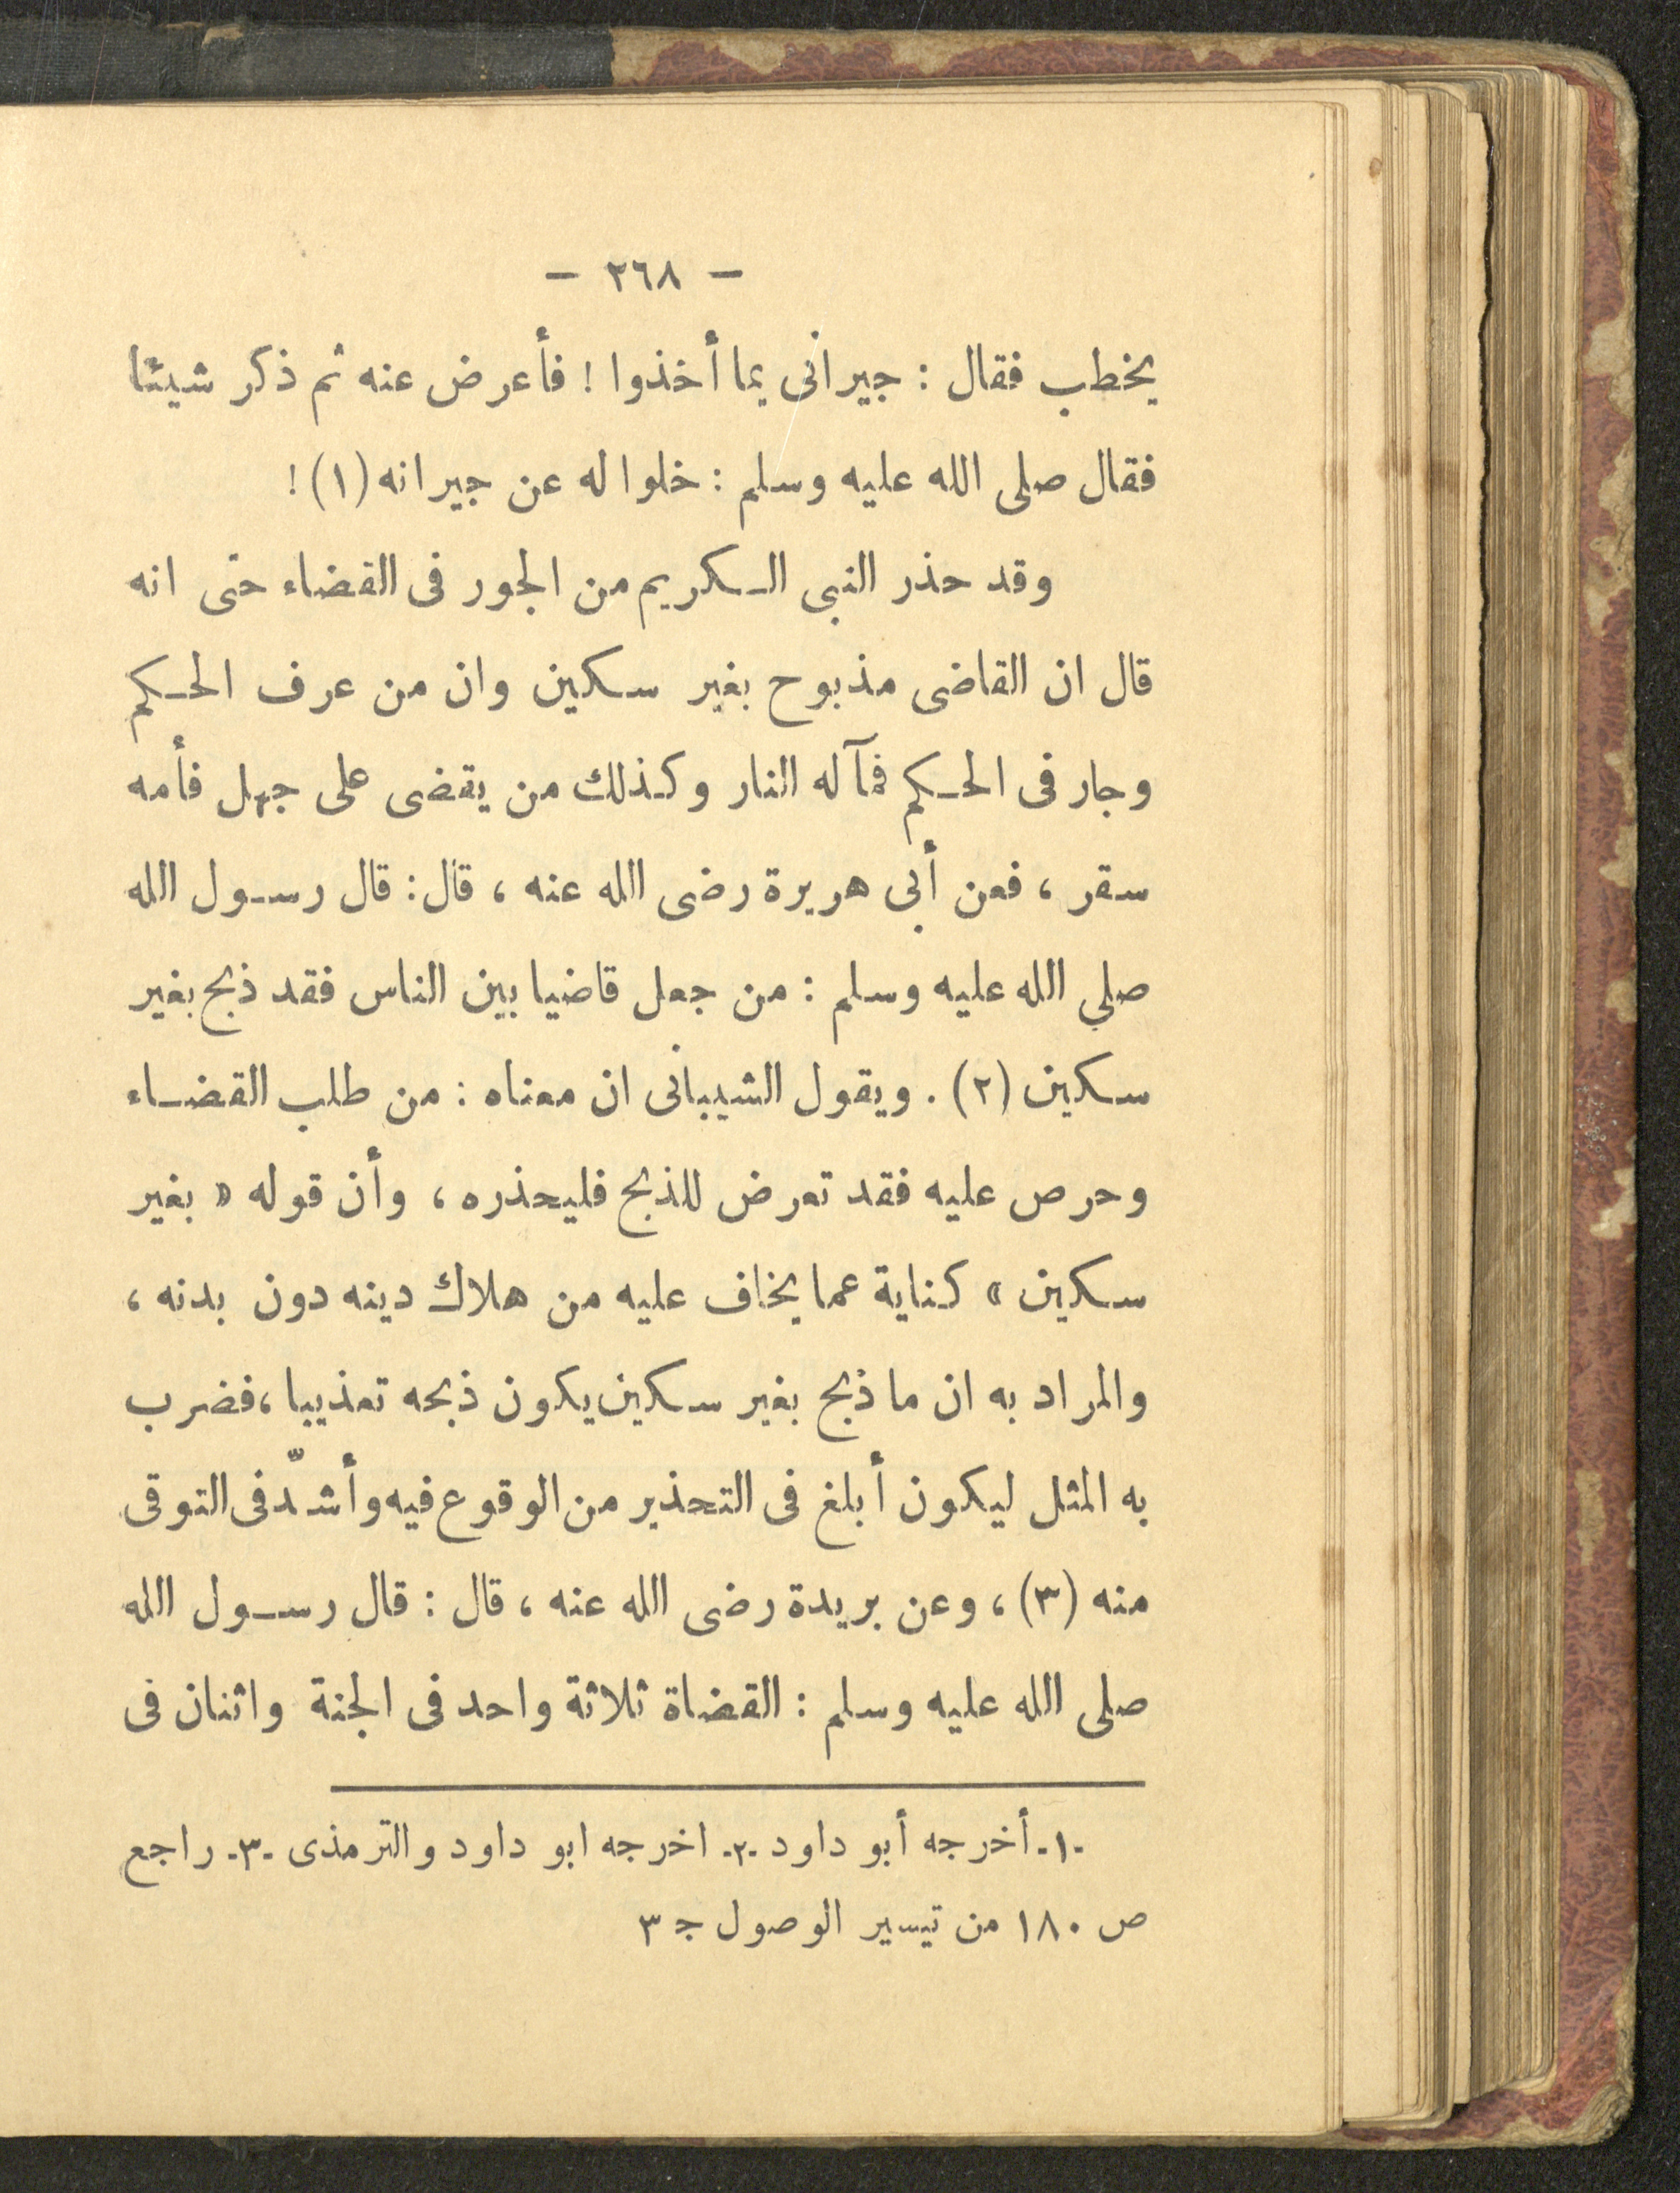 — ٢٦٨ —
يخطب فقال : جيرانى بما أخذوا ! فأعرض عنه ثم ذكر شيئا
فقال صلى الله عليه وسلم : خلوا له عن جيرانه (١) !
وقد حذر النبى الكريم من الجور فى القضاء حتى انه
قال ان القاضى مذبوح بغير سكين وان من عرف الحكم
وجار فى الحكم فمآله النار وكذلك من يقضى على جهل فأمه
سقر ، فعن أبى هريرة رضى الله عنه ، قال : قال رسول الله
صلي الله عليه وسلم : من جعل قاضيا بين الناس فقد ذبح بغير
سكين (٢) . ويقول الشيبانى ان معناه : من طلب القضاء
وحرص عليه فقد تعرض للذبح فليحذره ، وأن قوله « بغير
سكين » كناية عما يخاف عليه من هلاك دينه دون بدنه ،
والمراد به ان ما ذبح بغير سكين يكون ذبحه تعذيبا ، فضرب
به المثل ليكون أبلغ فى التحذير من الوقوع فيه وأشدّ فى التوقى
منه (٣) ، وعن بريدة رضى الله عنه ، قال : قال رسول الله
صلى الله عليه وسلم : القضاة ثلاثة واحد فى الجنة واثنان فى
-١- أخرجه أبو داود -٢- اخرجه ابو داود والترمذى -٣- راجع
ص ١٨٠ من تيسير الوصول ج ٣